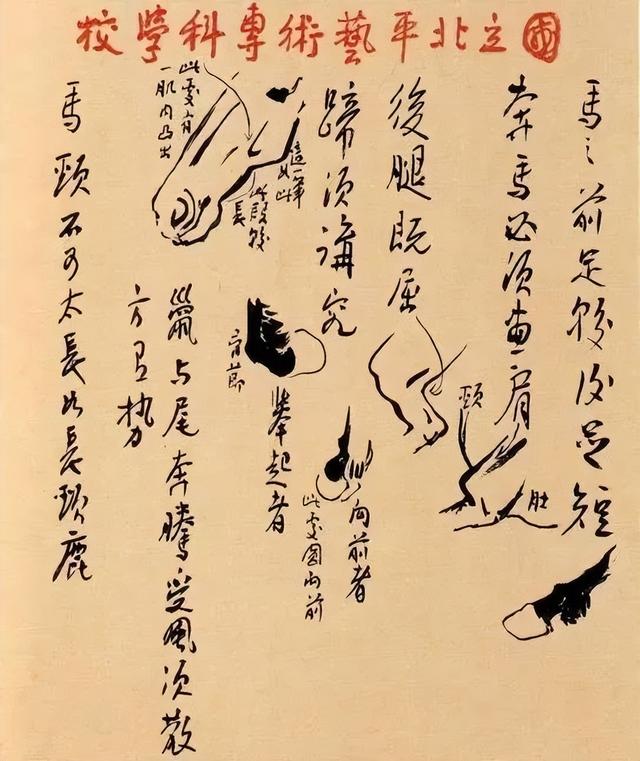 國立北平藝術專科學校
馬之前足較後足短
奔馬必須畫肩
頸
肚
後腿既屈
蹄須講究
此處有
一肌肉凸出
這一筆
如此
此段較
長
有節
舉起者
向前者
此處圓向前
鬣与尾奔騰受風須散
方有势
馬頸不可太長如長頸鹿